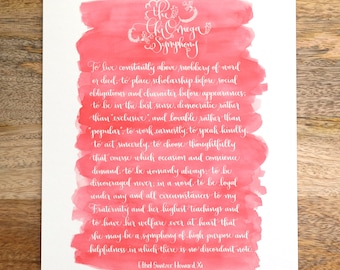 The
Chi Omega
Symphony
To live constantly above snobbery of word
or deed; to place scholarship before social
obligations and character before appearances;
to be in the best sense, democratic rather
than "exclusive", and lovable rather than
"popular"; to work earnestly, to speak kindly,
to act sincerely, to choose thoughtfully
that course which occasion and conscience
demand; to be womanly always; to be
discouraged never; in a word, to be loyal
under any and all circumstances to my
Fraternity and her highest teachings and
to have her welfare ever at heart that
she may be a symphony of high purpose and
helpfulness in which there is no discordant note.
Ethel Switzer Howard, Xi